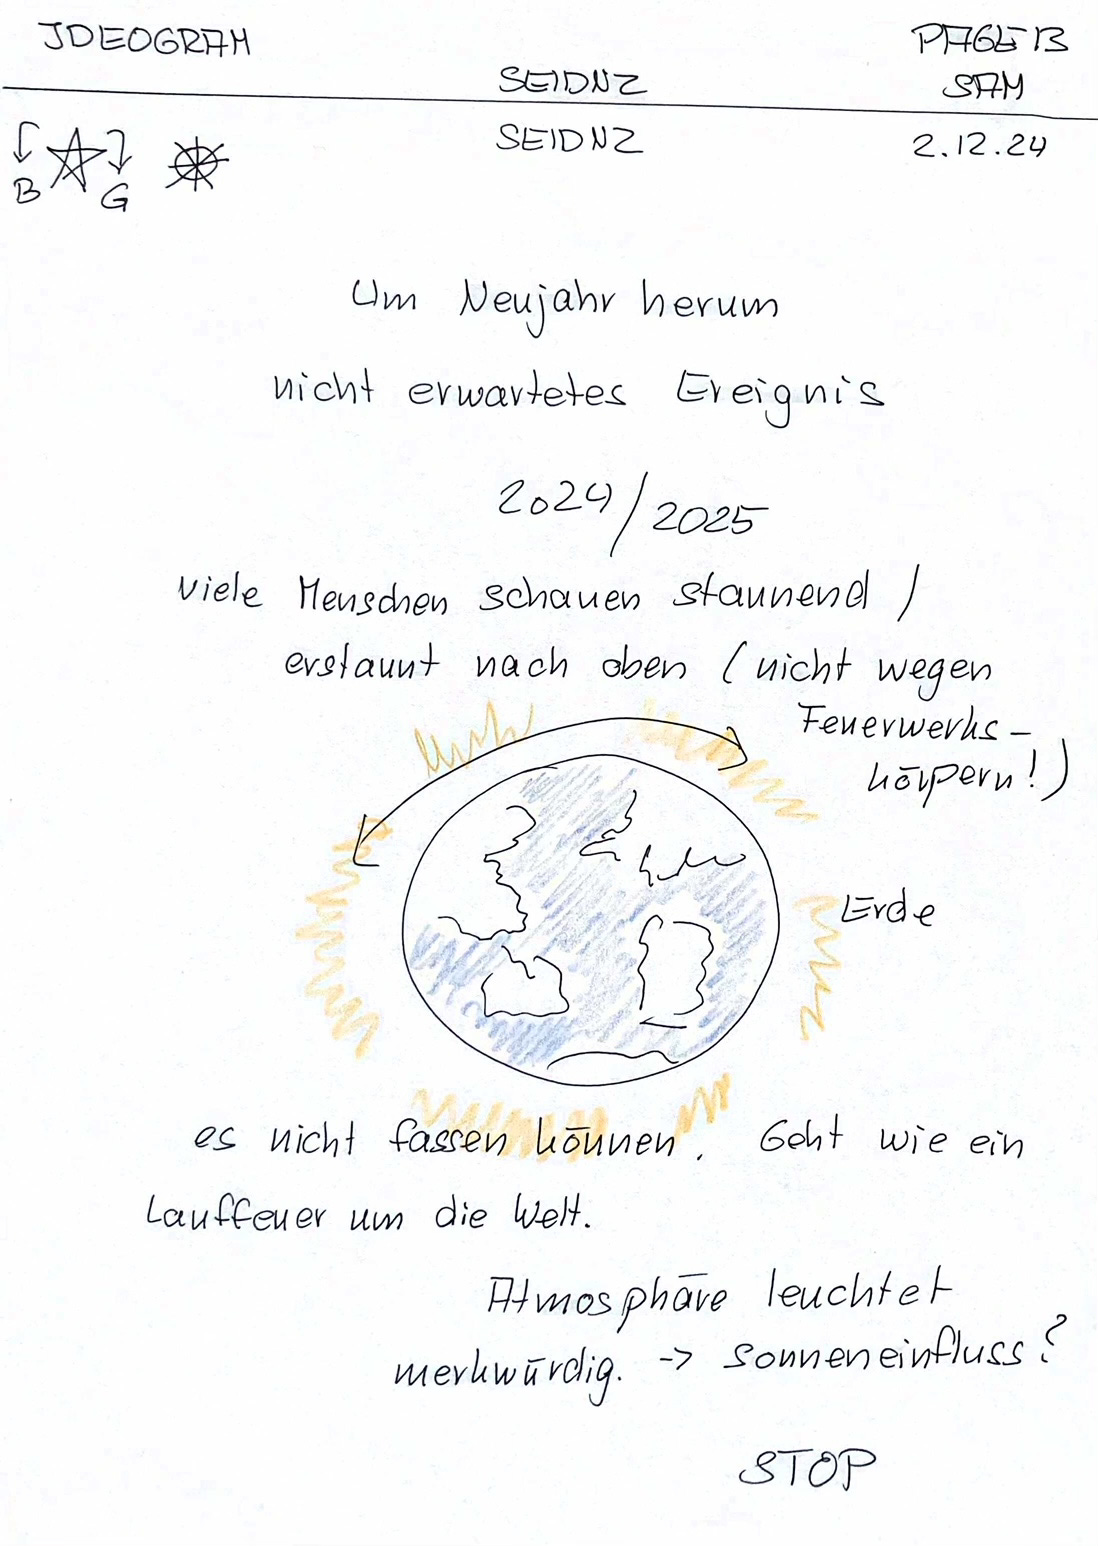 IDEOGRAM
PAGE 13
SEIDNZ
SAM
SEIDNZ
2.12.24
B
G
Um Neujahr herum
nicht erwartetes Ereignis
2024/2025
viele Menschen schauen staunend /
erstaunt nach oben (nicht wegen
Feuerwerks-
körpern!)
Erde
es nicht fassen können. Geht wie ein
Lauffeuer um die Welt.
Atmosphäre leuchtet
merkwürdig. -> Sonneneinfluss?
STOP